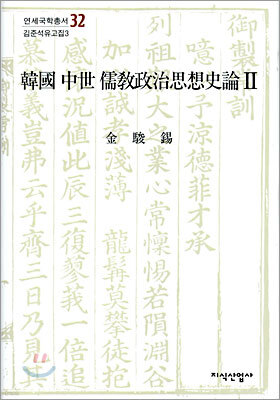 연세국학총서 32
김준석유고집3
韓國 中世 儒敎政治思想史論 II
金 駿 錫
御製
噫 予涼德菲才承
列祖 業心常懍惕若隕淵谷
加 誠孝淺薄 龍髯莫攀徒抱
三復蓼莪一倍追
慕感 豈弗云乎齊三日乃見其
지식산업사